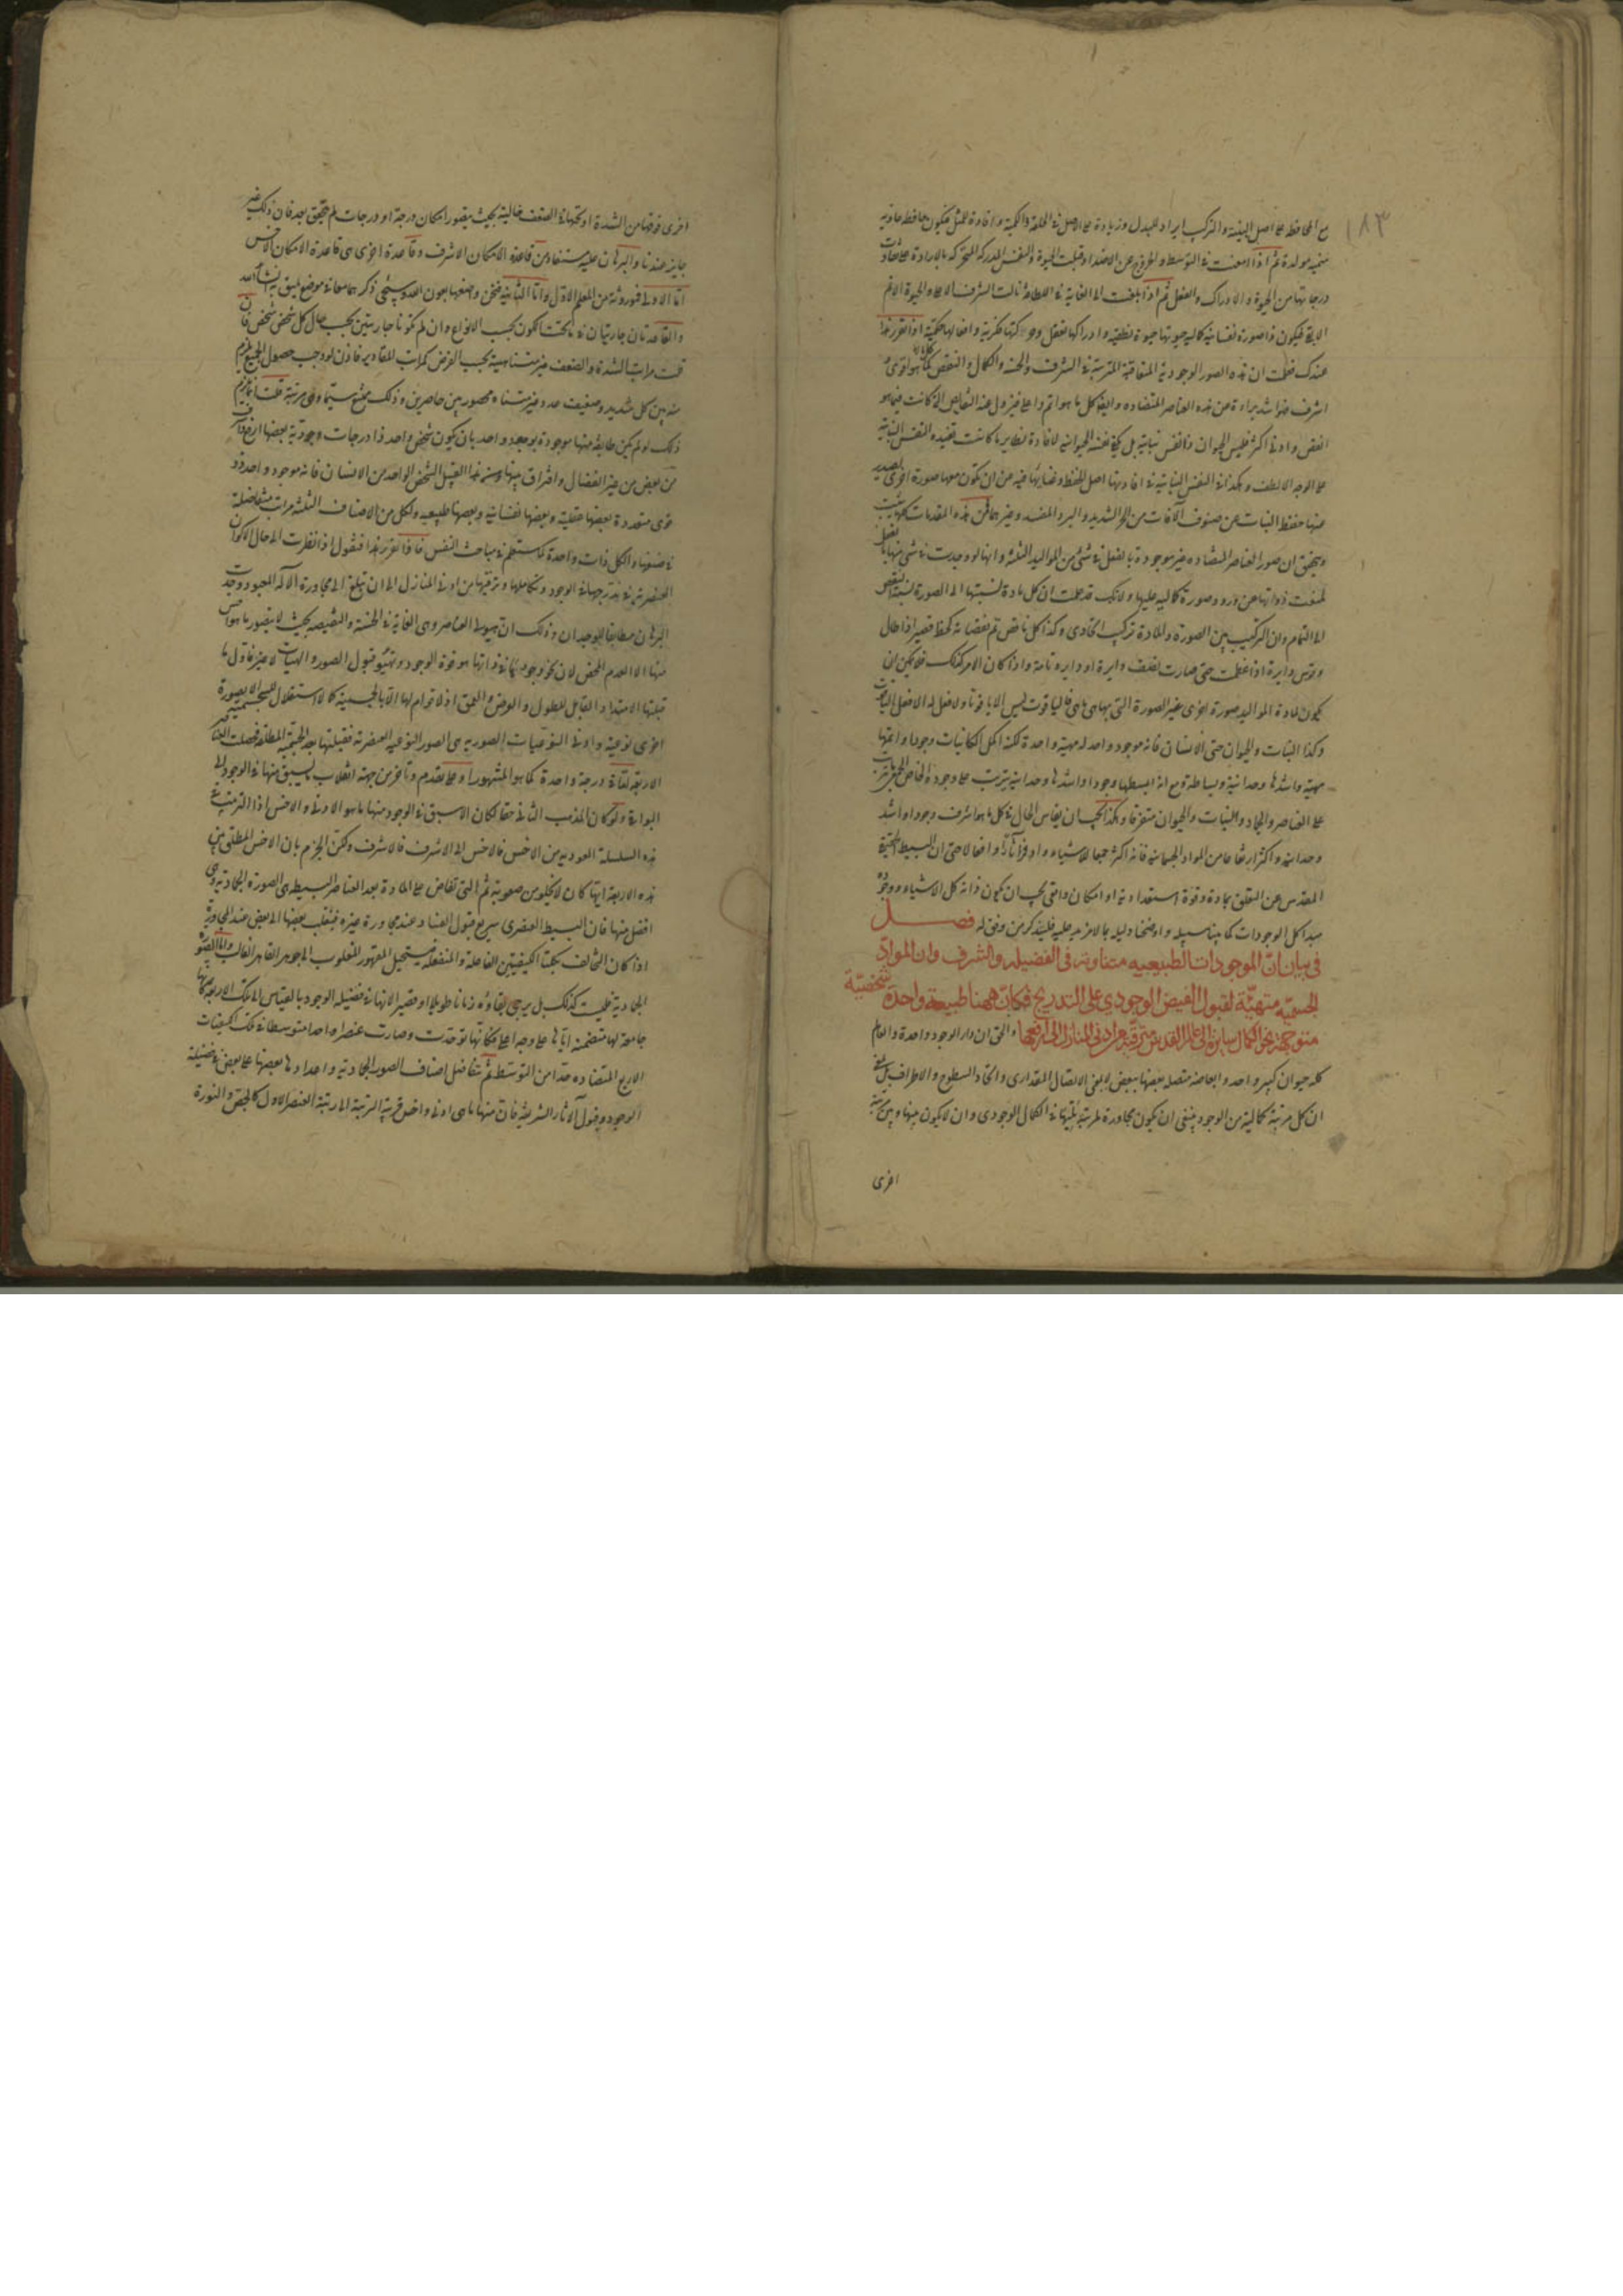 ١٨٣
مع المحافظة على اصل البنية والتركيب بايراد البدل وزيادة على الاصل فى الخلقة والكمية وافادة المثل فيكون حافظة غاذية
منمية مولدة ثم اذا امعنت فى التوسط والخروج عن الاضداد قبلت الحيوة والنفس المدركة المتحركة بالارادة على تفاوت
درجاتها من الحيوة والادراك والفعل ثم اذا بلغت الى الغاية فى اللطافة نالت الشرف الاعلى والحيوة الاتم
الابقى فيكون ذا صورة نفسانية كمالية حيوتها حيوة نطقية وادراكها تعقل وحركتها فكرية وافعالها حكمية اذا تقرر هذا
عندك فعلمت ان هذه الصور الوجودية المتعاقبة المترتبة فى الشرف والخسة والكمال والنقص كلما هو اقوى و
اشرف
انقص وادنى اكثر فليس للحيوان نفس نباتية بل يكفى نفسه الحيوانية لافادة نظاير ما كانت تفيده النفس النباتية
على الوجه الالطف وهكذا فى النفس النباتية فى افادتها اصل الحفظ
منها حفظ النبات عن صنوف الآفات من الحر الشديد والبرد المفسد وغيرهما فمن هذه المقدمات كلها يثبت
ويتحقق ان صور العناصر المتضادة غير موجودة بالفعل فى شئ من المواليد الثلثة وانها لو وجدت فى شئ منها بالفعل
لمنعت ذواتها عن ورود صورة كمالية عليها ولانك قد علمت ان كل مادة نسبتها الى الصورة نسبة النقص
الى التمام وان التركيب بين الصورة والمادة تركيب اتحادى وكذا كل ناقص تم نقصانه كخط قصير اذا طال
وقوس دايرة اذا عظمت حتى صارت نصف دايرة او دايرة تامة واذا كان الامر كذلك فلا يمكن ان
يكون لمادة المواليد صورة اخرى غير الصورة التى بها هى هى فالياقوت ليس الا ياقوتا ولا فعل له الا فعل الياقوت
وكذا النبات والحيوان حتى الانسان فانه موجود واحد له مهية واحدة لكنه اكمل الكائنات وجودا واتمها
مهية واشدها وحدانية وبساطة ومع انه ابسطها وجودا واشدها وحدانية يترتب على وجوده الخاص
على العناصر والجماد والنبات والحيوان متفرقا وهكذا يجب ان يقاس الحال فى كل ما هو اشرف وجودا واشد
وحدانية واكثر ارتفاعا من المواد الجسمانية فانه اكثر جمعا للاشياء واوفر آثارا وافعالا حتى ان البسيط الحقيقة
المقدس عن التعلق بمادة وقوة استعدادية او امكان واقعى يجب ان يكون ذاته كل الاشياء ووجوده
مبدأ كل الوجودات كما بينا سبيله واوضحنا دليله بما لا مزيد عليه فليتذكر من وفق له فصل
فى بيان انّ الموجودات الطبيعيه متفاوتة فى الفضيلة والشرف وان المواد
الجسميّه متهيّئة لقبول الفيض الوجودى على التدريج فكانّ ههنا طبيعة واحدة شخصيّة
متوجهة نحو الكمال سايرة الى عالم القدس مترقية من ادنى المنازل الى ارفعها والحق ان دار الوجود واحدة والعالم
كله حيوان كبير واحد وابعاضه متصلة بعضها ببعض لا بمعنى الاتصال المقدارى واتحاد السطوح والاطراف بل بمعنى
ان كل مرتبة كمالية من الوجود ينبغى ان يكون مجاورة لمرتبة يليها فى الكمال الوجودى وان لا يكون بينها وبين مرتبة
اخرى
اخرى فوقها من الشدة او تحتها فى الضعف خالية بحيث يتصور امكان درجة او درجات لم يتحقق بعد فان ذلك غير
جايز عندنا والبرهان عليه مستفاد من قاعدة الامكان الاشرف وقاعدة اخرى هى قاعدة الامكان الاخس
اما الاولى فموروثة من المعلم الاول واما الثانية فنحن وضعناها بعون الله وسيجئ ذكرهما معا فى موضع يليق به انشاء الله
والقاعدتان جاريتان فى ما تحت الكون بحسب الانواع وان لم تكونا جاريتين بحسب حال كل شخص شخص فان
قلت مراتب الشدة والضعف غير متناهية بحسب الفرض كمراتب المقادير فاذن لو وجب حصول الجميع لزم
منه بين كل شديد وضعيف عدد غير متناه محصور بين حاصرين وذلك ممتنع سيما وهى مرتبة قلت انما يلزم
ذلك لو لم يكن طايفة منها موجودة بوجود واحد بان يكون شخص واحد ذا درجات وجودية بعضها ارفع واشرف
من بعض من غير انفصال وافتراق بينها ومن هذا القبيل الشخص الواحد من الانسان فانه موجود واحد ذو
قوى متعددة بعضها عقلية وبعضها نفسانية وبعضها طبيعيه ولكل من الاصناف الثلثة مراتب متفاضلة
فى صنفها والكل ذات واحدة كما ستعلم فى مباحث النفس فاذا تقرر هذا فنقول اذا نظرت الى حال الاكوان
العنصرية فى تدرجها فى الوجود وتكاملها وترقيها من ادنى المنازل الى ان تبلغ الى مجاورة الآله المعبود وجدت
البرهان مطابقا للوجدان وذلك ان هيولى العناصر وهى الغاية فى الخسة والنقيصه بحيث لا يتصور ما هو اخس
منها الا العدم المحض لان نحو وجودها فى ذاتها هو قوة الوجود وتهيؤ قبول الصور والهيآت لا غير فاول ما
قبلتها الامتداد القابل للطول والعرض والعمق اذ لا قوام لها الا بالجسمية كما لا استقلال للجسمية الا بصورة
اخرى نوعية وادنى النوعيات الصورية هى الصور النوعيه العنصرية فقبلتها بعد الجسمية المطلقة فحصلت العناصر
الاربعة اما فى درجة واحدة كما هو المشهور او على تقدم وتأخر من جهة انقلاب يسبق منها فى الوجود الى
البواقى ولو كان المذهب الثانى حقا لكان الاسبق فى الوجود منها ما هو الادنى والاخس اذا الترتيب فى
هذه السلسلة العودية من الاخس فالاخس الى الاشرف فالاشرف ولكن الجزم بان الاخس المطلق من
هذه الاربعة ايها كان لا يخلو من صعوبة ثم التى تفاض على المادة بعد العناصر البسيطه هى الصورة الجمادية وهى
افضل منها فان البسيط العنصرى سريع قبول الفساد عند مجاورة غيره فينقلب بعضها الى بعض عند المجاورة
اذا كان التخالف بكلتا الكيفيتين الفاعلة والمنفعلة فيستحيل المقهور المغلوب الى جوهر القاهر الغالب واما الصورة
الجمادية فليست كذلك بل يرجى بقاؤه زمانا طويلا او قصيرا لانها فى فضيلة الوجود بالقياس الى تلك الاربعة كانها
جامعة لها متضمنة اياها على وجه اعلى فكأنها توحدت وصارت عنصرا واحدا متوسطا فى تلك الكيفيات
الاربع المتضادة حدا من التوسط ثم تتفاضل اصناف الصور الجمادية واعدادها بعضها على بعض فى فضيلة
الوجود وقبول الآثار الشريفة فان منها ما هى ادنى واخس قريبة الرتبة الى رتبة العنصر الاول كالجص والنورة